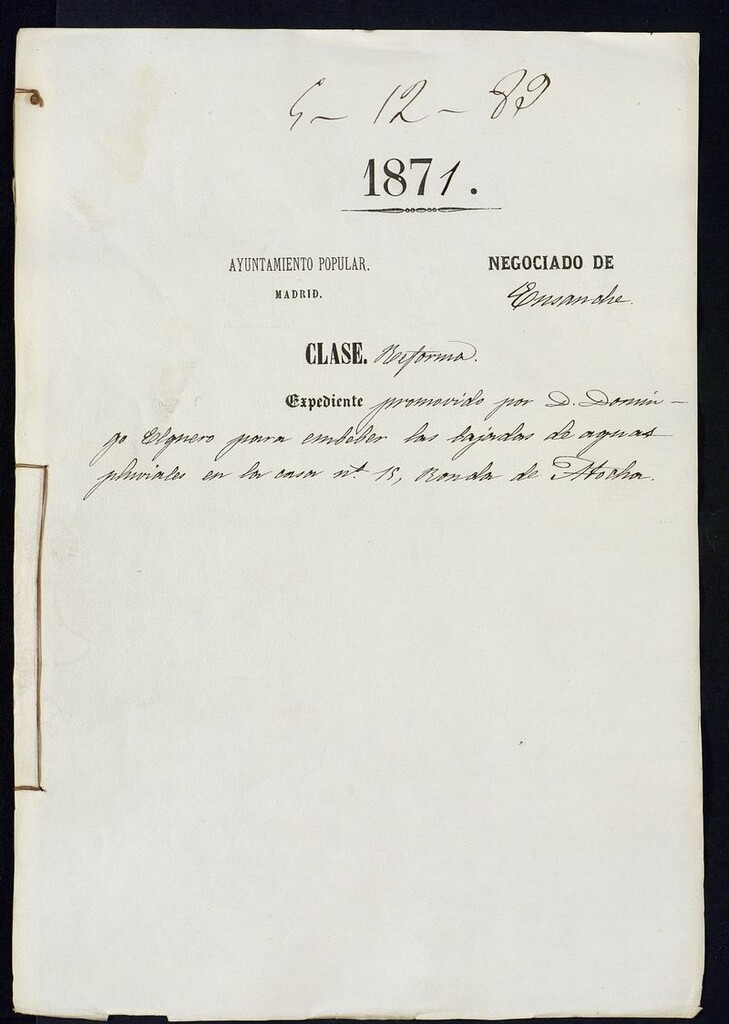 5 - 12 - 89
1871.
AYUNTAMIENTO POPULAR.
MADRID.
NEGOCIADO DE
Ensanche.
CLASE. Reforma.
Expediente promovido por D. Domin-
go Elguero para embeber las bajadas de aguas
pluviales en la casa nº 15, Ronda de Atocha.